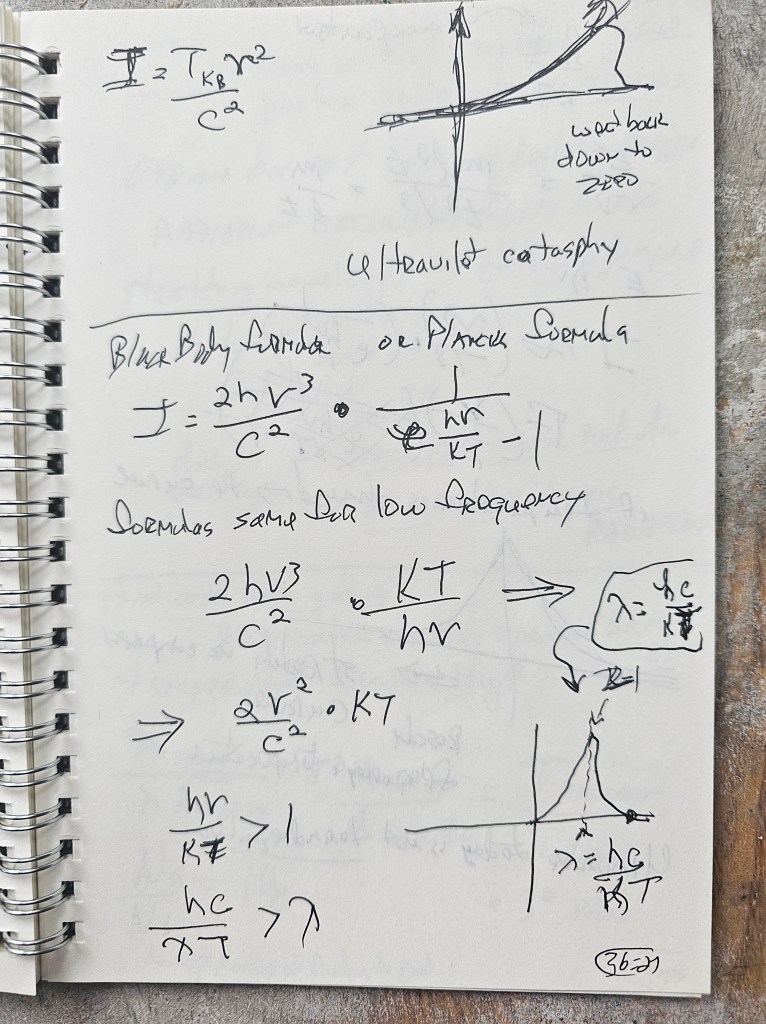 I = T K_B ν² / C²
went back
down to
zero
Ultravilot catasphy
Black Body formula or Plancks formula
I = 2hν³ / C² • 1 / (e^(hν/KT) - 1)
formulas same for low frequency
2hν³ / C² • KT / hν ⇒ λ = hc / KT
⇒ 2ν² / C² • KT
hν / KT > 1
λ = hc / KT
hc / KT > λ
36=21